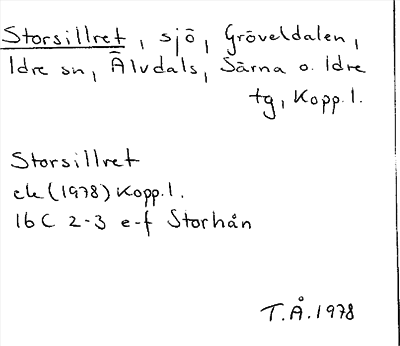 Storsillret, sjö, Gröveldalen,
Idre sn, Älvdals, Särna o. Idre
tg, Kopp. l.
Storsillret
ek (1978) Kopp. l.
16C 2-3 e-f Storhån
T.Å. 1978